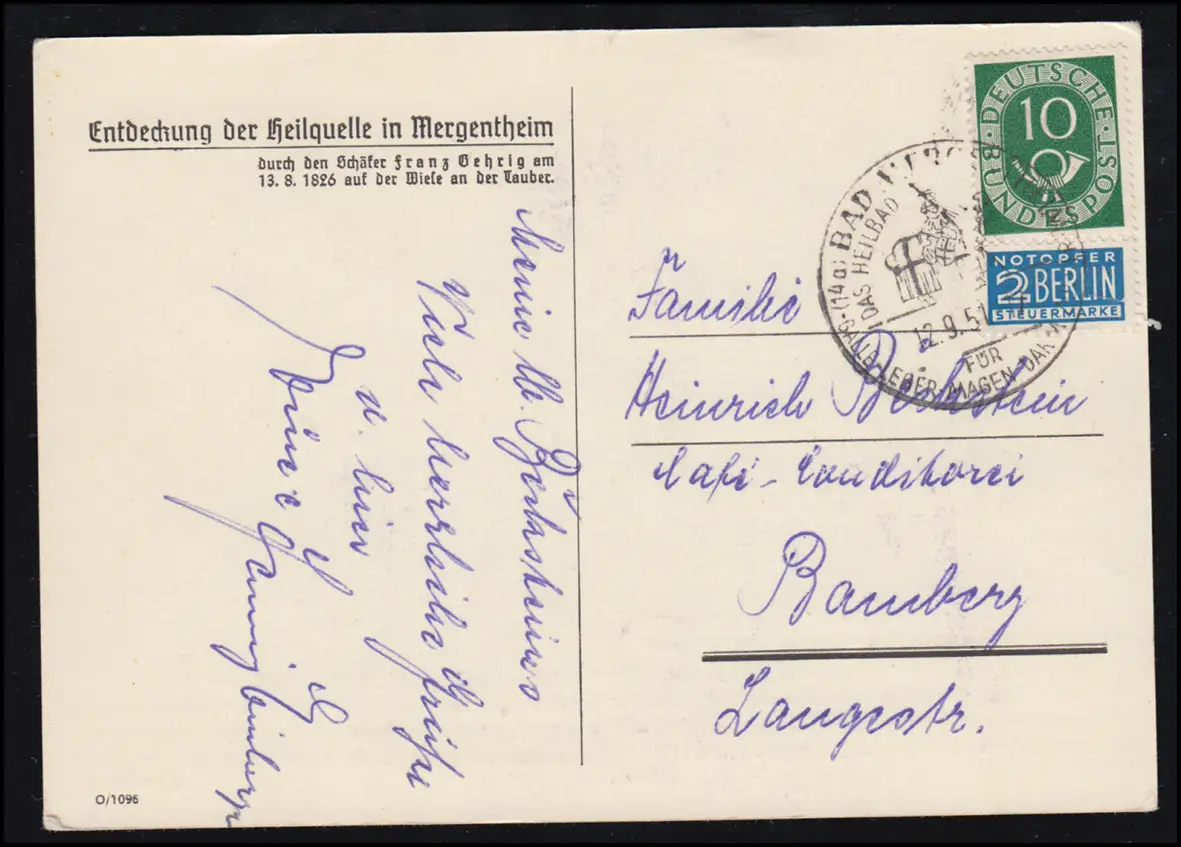 Entdeckung der Heilquelle in Mergentheim
durch den Schäfer Franz Gehrig am
13. 8. 1826 auf der Wiese an der Tauber.
Meine lb.
Viele herzliche Grüße
u. hier
O/1096
DEUTSCHE BUNDESPOST
10
NOTOPFER
2 BERLIN
STEUERMARKE
(14a) BAD MERG
DAS HEILBAD
12.9.51
FÜR
GALLE-LEBER-MAGEN-DARM
Familie
Heinrich
Café - Conditorei
Bamberg
Langestr.